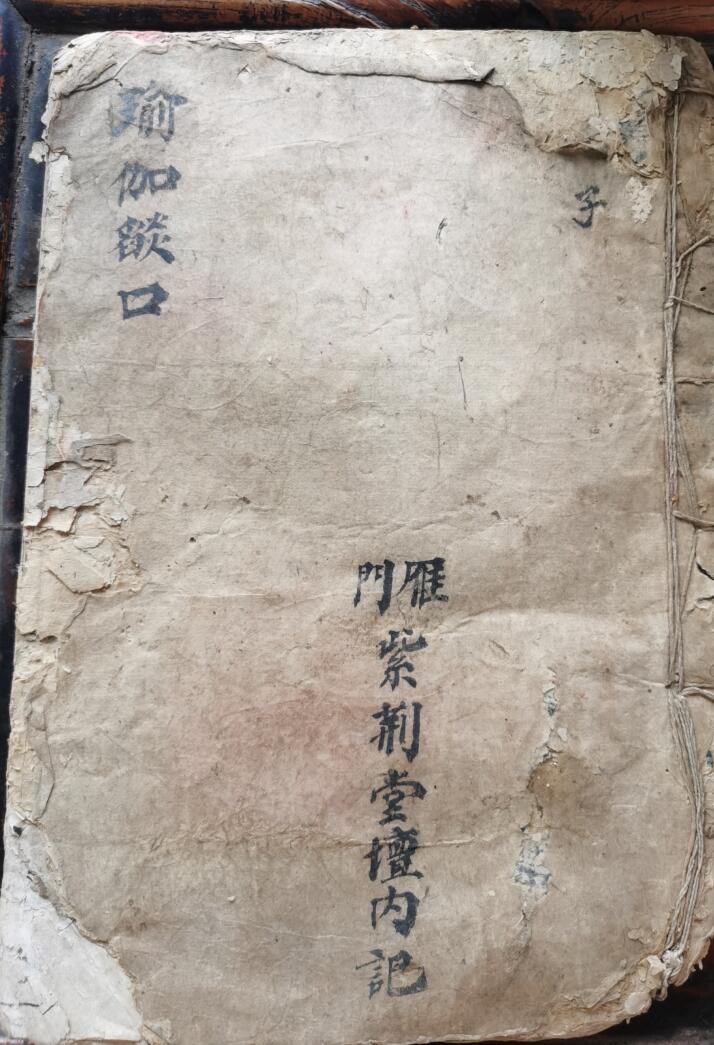 子
雁門
紫荊堂壇內記
瑜伽燄口